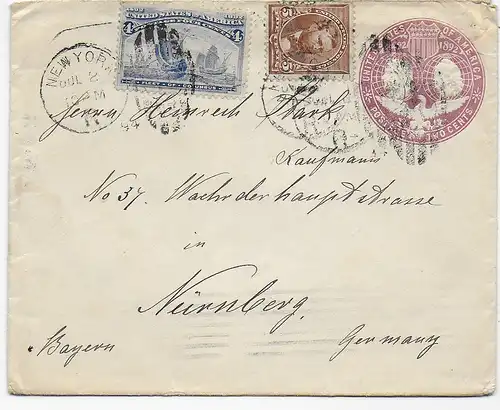 1492 UNITED STATES OF AMERICA 1892
4 4
FLEET OF COLUMBUS
5 5
UNITED STATES OF AMERICA
1492 1892
POSTAGE TWO CENTS
NEW YORK
JUL 2
Herrn Heinrich Stark
Kaufmann
No 37. Wachederhauptstrasse
in
Nürnberg
Bayern Germany